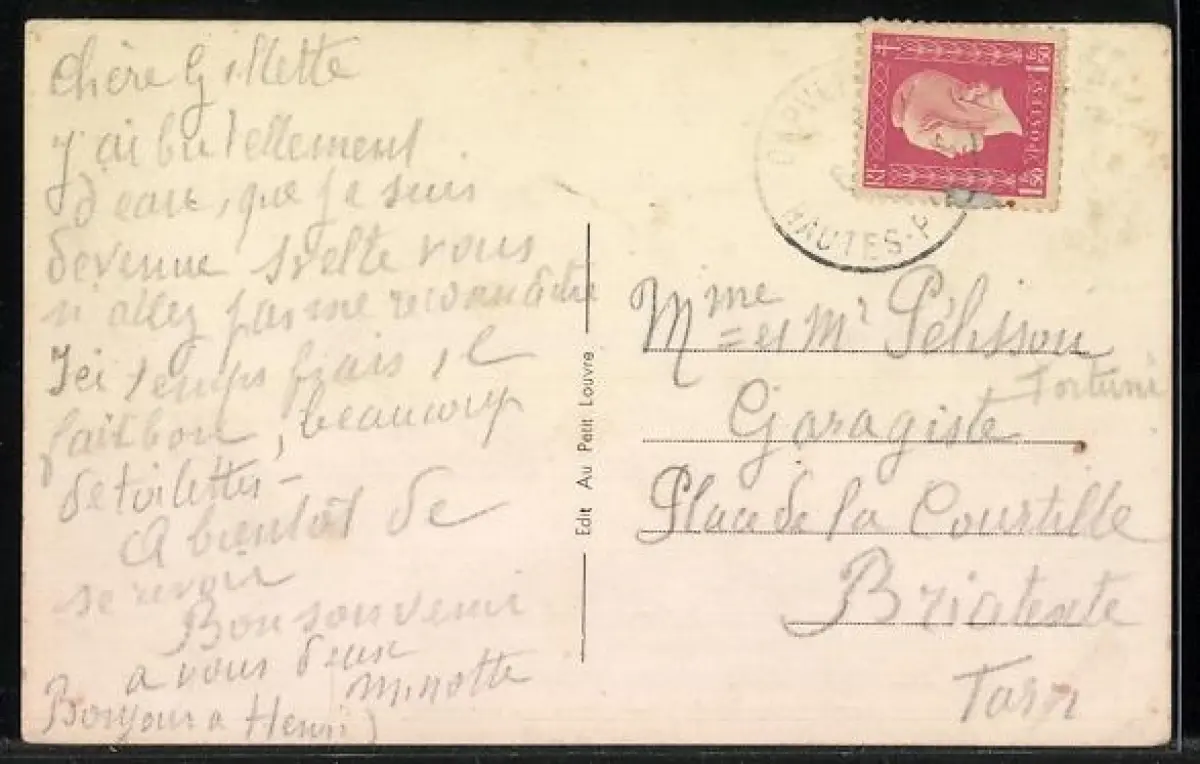 Chère Gillette
j'ai bu tellement
d'eau, que je suis
devenue svelte vous
n'allez pas me reconnaitre
Ici temps frais, il
fait bon, beaucoup
de toilettes -
A bientôt de
se revoir
Bon souvenir
a vous deux
Minotte
Bonjour a Henri)
Edit Au Petit Louvre
CAPVE
HAUTES-P
RF POSTES 1F50 1F50
Mme = et Mr Pélisson
Fortuné
Garagiste
Place de la Courtille
Briatexte
Tarn